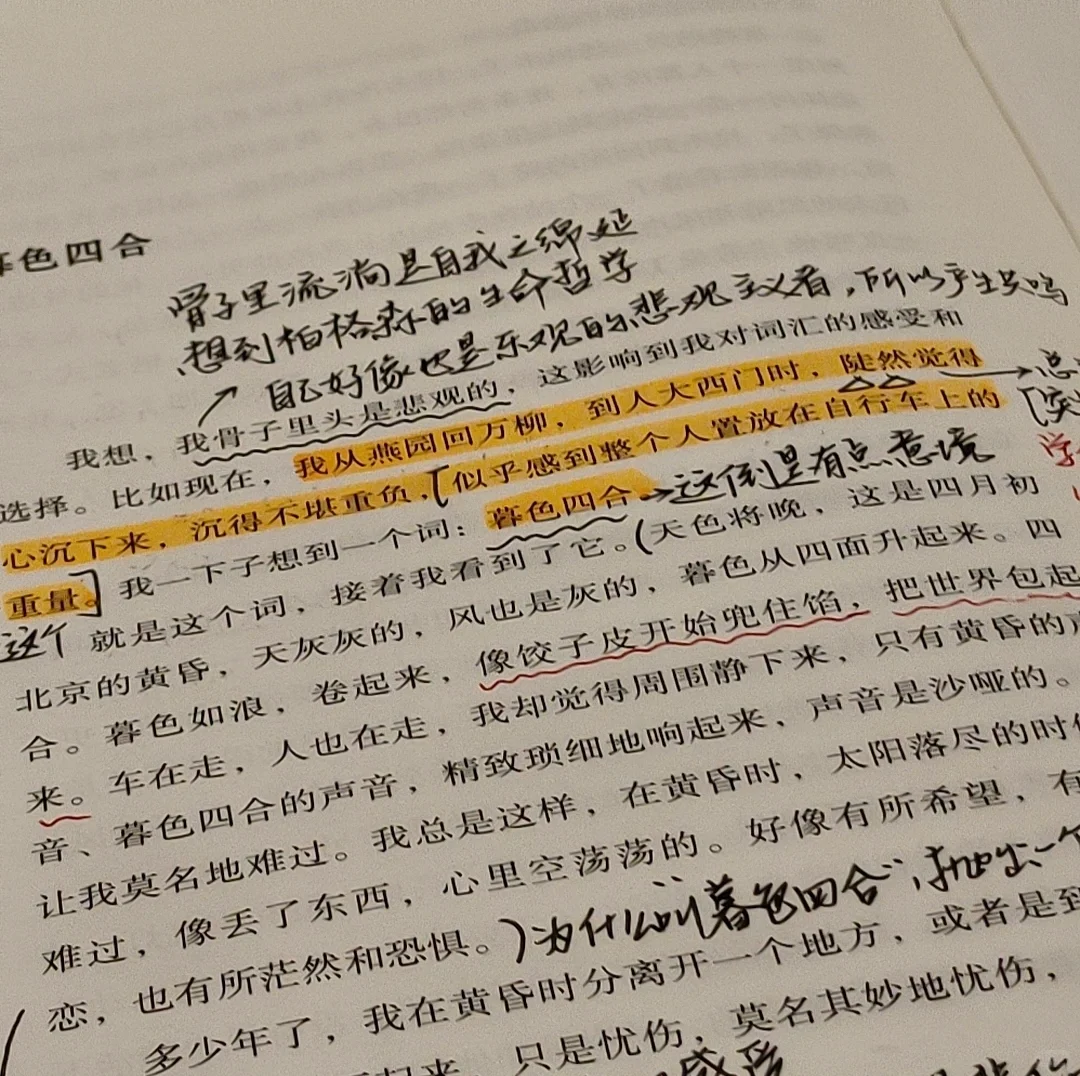 色四合
骨子里流淌是自我之绵延
想到柏格森的生命哲学
自己好像也是乐观的悲观主义者，所以产生共鸣
我想，我骨子里头是悲观的，这影响到我对词汇的感受和
选择。比如现在，我从燕园回万柳，到人大西门时，陡然觉得
心沉下来，沉得不堪重负，似乎感到整个人置放在自行车上的
重量。我一下子想到一个词：暮色四合
这倒是有点意境
这个
就是这个词，接着我看到了它。（天色将晚，这是四月初
北京的黄昏，天灰灰的，风也是灰的，暮色从四面升起来。四
合。暮色如浪，卷起来，像饺子皮开始兜住馅，把世界包起
来。车在走，人也在走，我却觉得周围静下来，只有黄昏的声
音、暮色四合的声音，精致琐细地响起来，声音是沙哑的。
让我莫名地难过。我总是这样，在黄昏时，太阳落尽的时候
难过，像丢了东西，心里空荡荡的。好像有所希望，有
恋，也有所茫然和恐惧。）
为什么叫“暮色四合”，抛出一个
多少年了，我在黄昏时分离开一个地方，或者是到
起来，只是忧伤，莫名其妙地忧伤，
感受